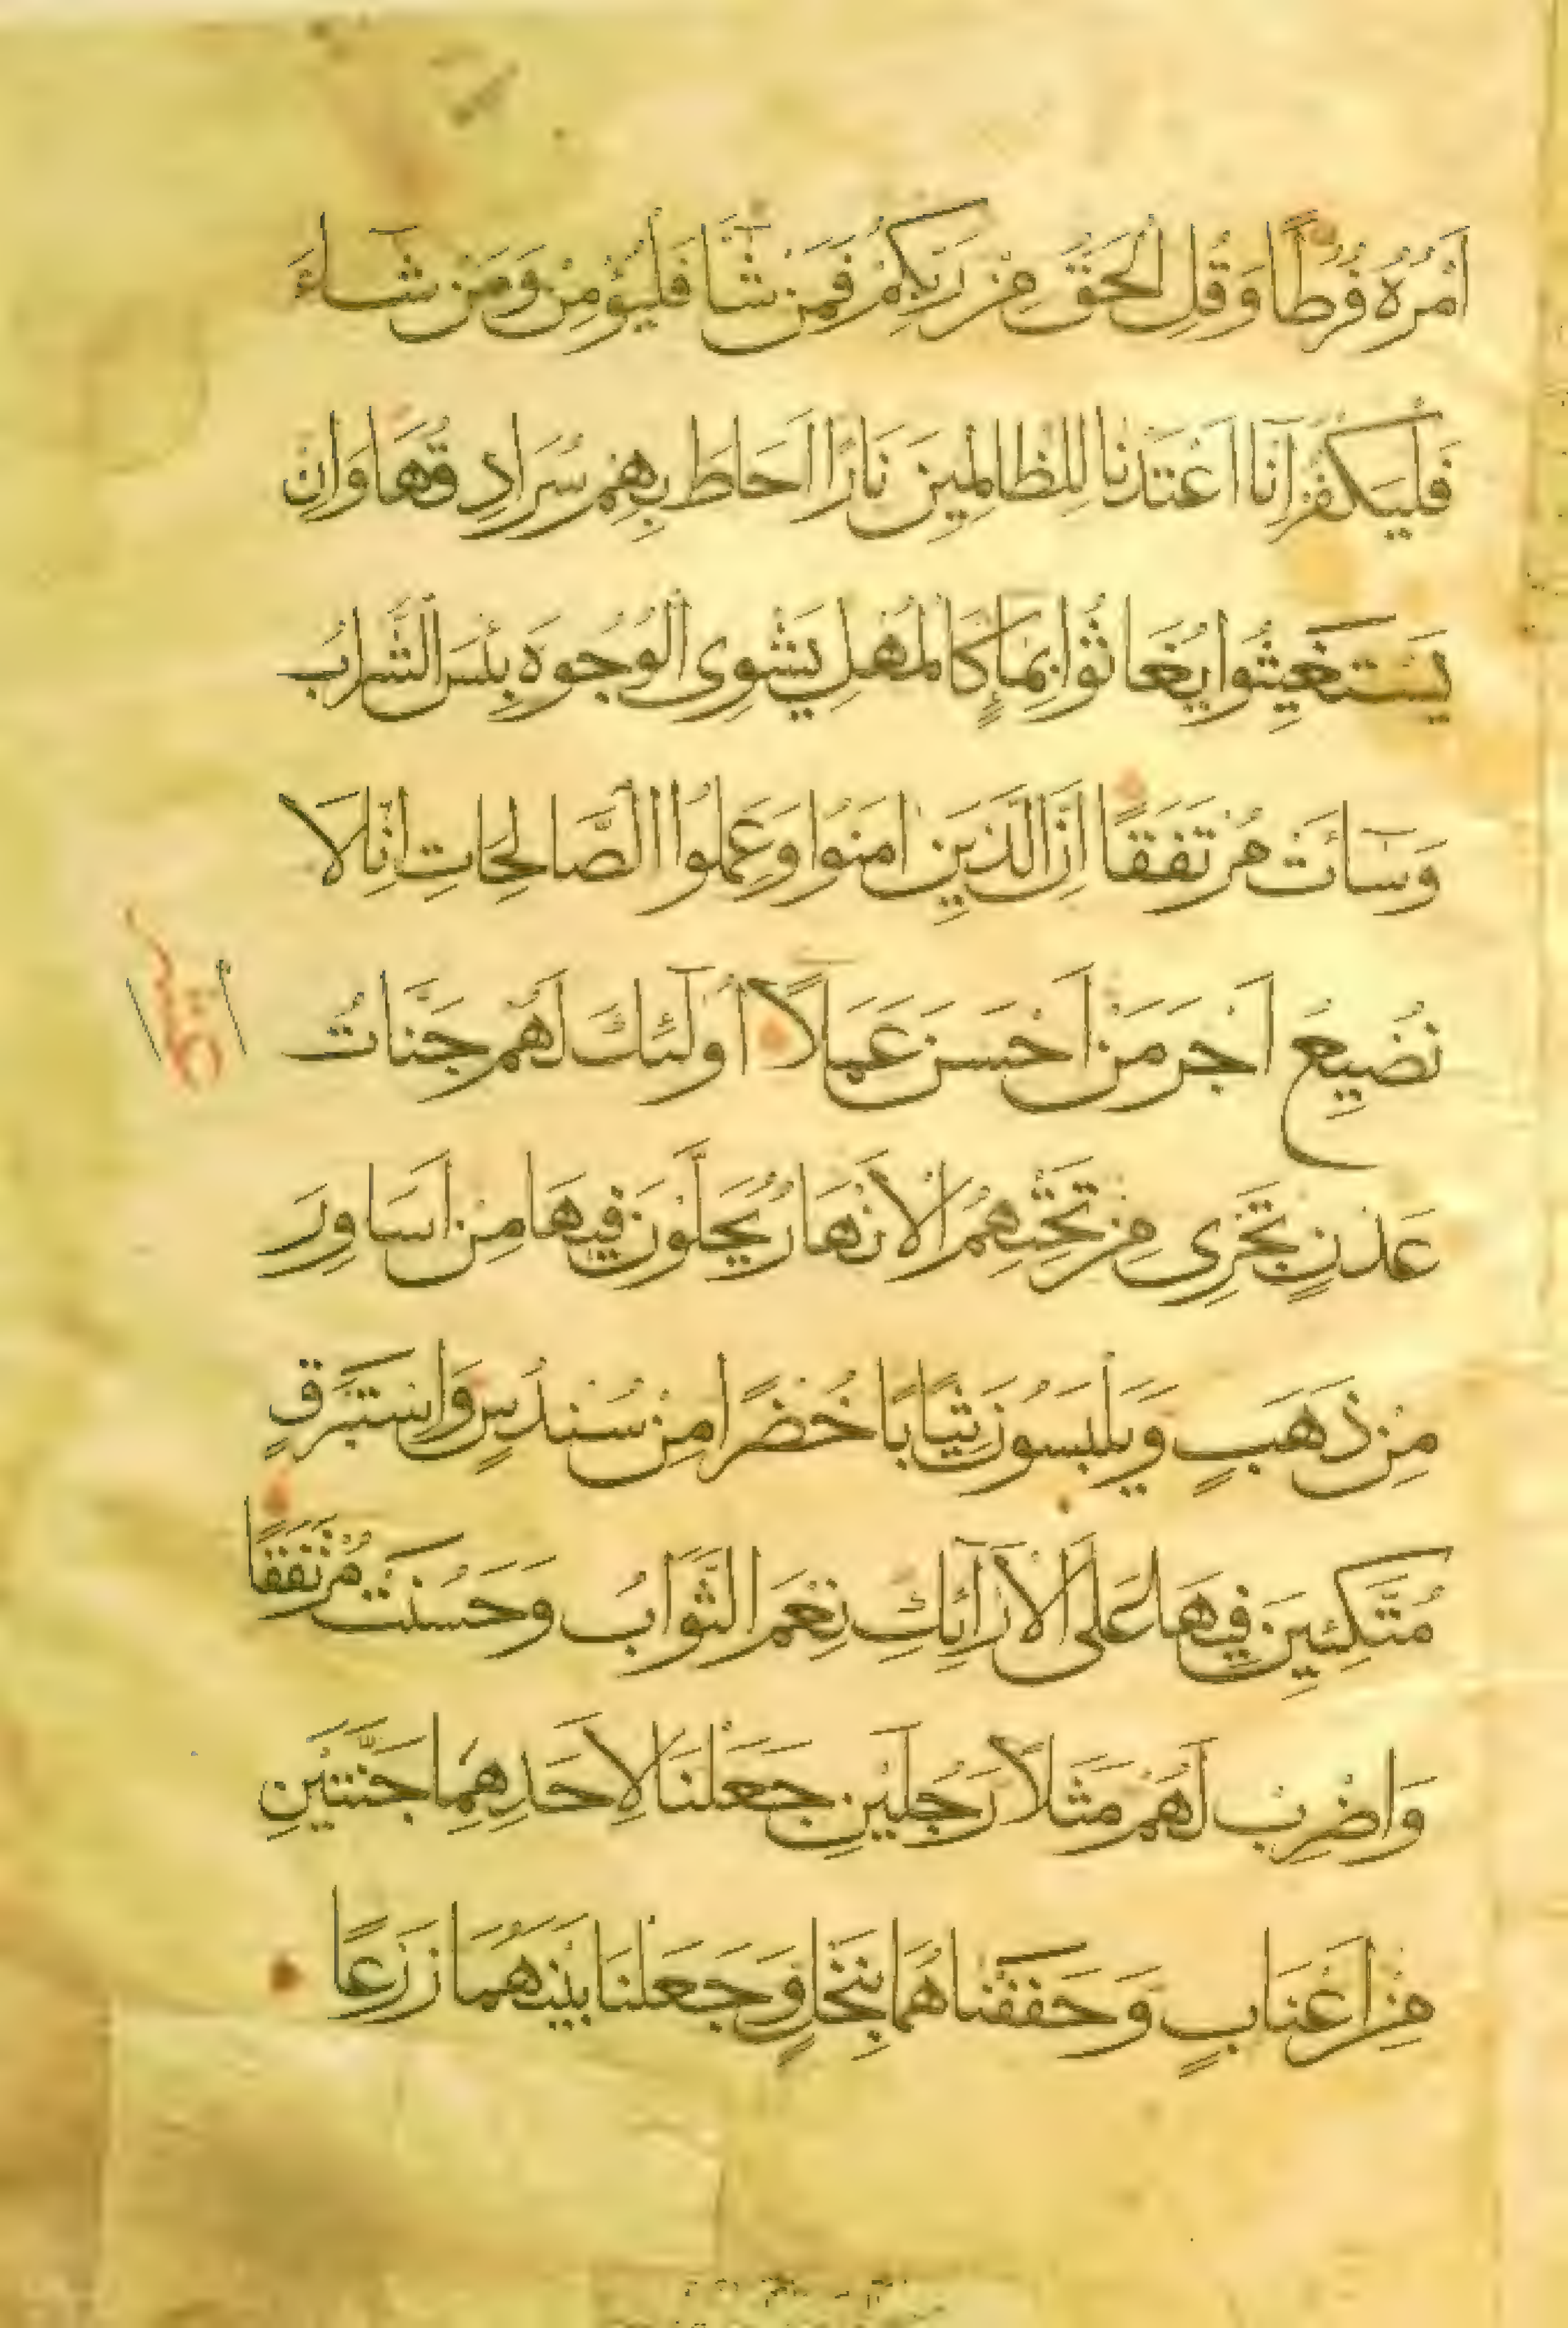 اَمْرُهُ فُرُطًا وَقُلِ الْحَقُّ مِنْ رَبِّكُمْ فَمَنْ شَآءَ فَلْيُؤْمِنْ وَمَنْ شَآءَ
فَلْيَكْفُرْ اِنَّا اَعْتَدْنَا لِلظَّالِمِينَ نَارًا اَحَاطَ بِهِمْ سُرَادِقُهَا وَاِنْ
يَسْتَغِيثُوا يُغَاثُوا بِمَاءٍ كَالْمُهْلِ يَشْوِى الْوُجُوهَ بِئْسَ الشَّرَابُ
وَسَآئَتْ مُرْتَفَقًا اِنَّ الَّذِينَ اٰمَنُوا وَعَمِلُوا الصَّالِحَاتِ اِنَّا لَا
نُضِيعُ اَجْرَ مَنْ اَحْسَنَ عَمَلًا اُولٰٓئِكَ لَهُمْ جَنَّاتُ
عَدْنٍ تَجْرِى مِنْ تَحْتِهِمُ الْاَنْهَارُ يُحَلَّوْنَ فِيهَا مِنْ اَسَاوِرَ
مِنْ ذَهَبٍ وَيَلْبَسُونَ ثِيَابًا خُضْرًا مِنْ سُنْدُسٍ وَاِسْتَبْرَقٍ
مُتَّكِئِينَ فِيهَا عَلَى الْاَرَآئِكِ نِعْمَ الثَّوَابُ وَحَسُنَتْ مُرْتَفَقًا
وَاضْرِبْ لَهُمْ مَثَلًا رَجُلَيْنِ جَعَلْنَا لِاَحَدِهِمَا جَنَّتَيْنِ
مِنْ اَعْنَابٍ وَحَفَفْنَاهُمَا بِنَخْلٍ وَجَعَلْنَا بَيْنَهُمَا زَرْعًا